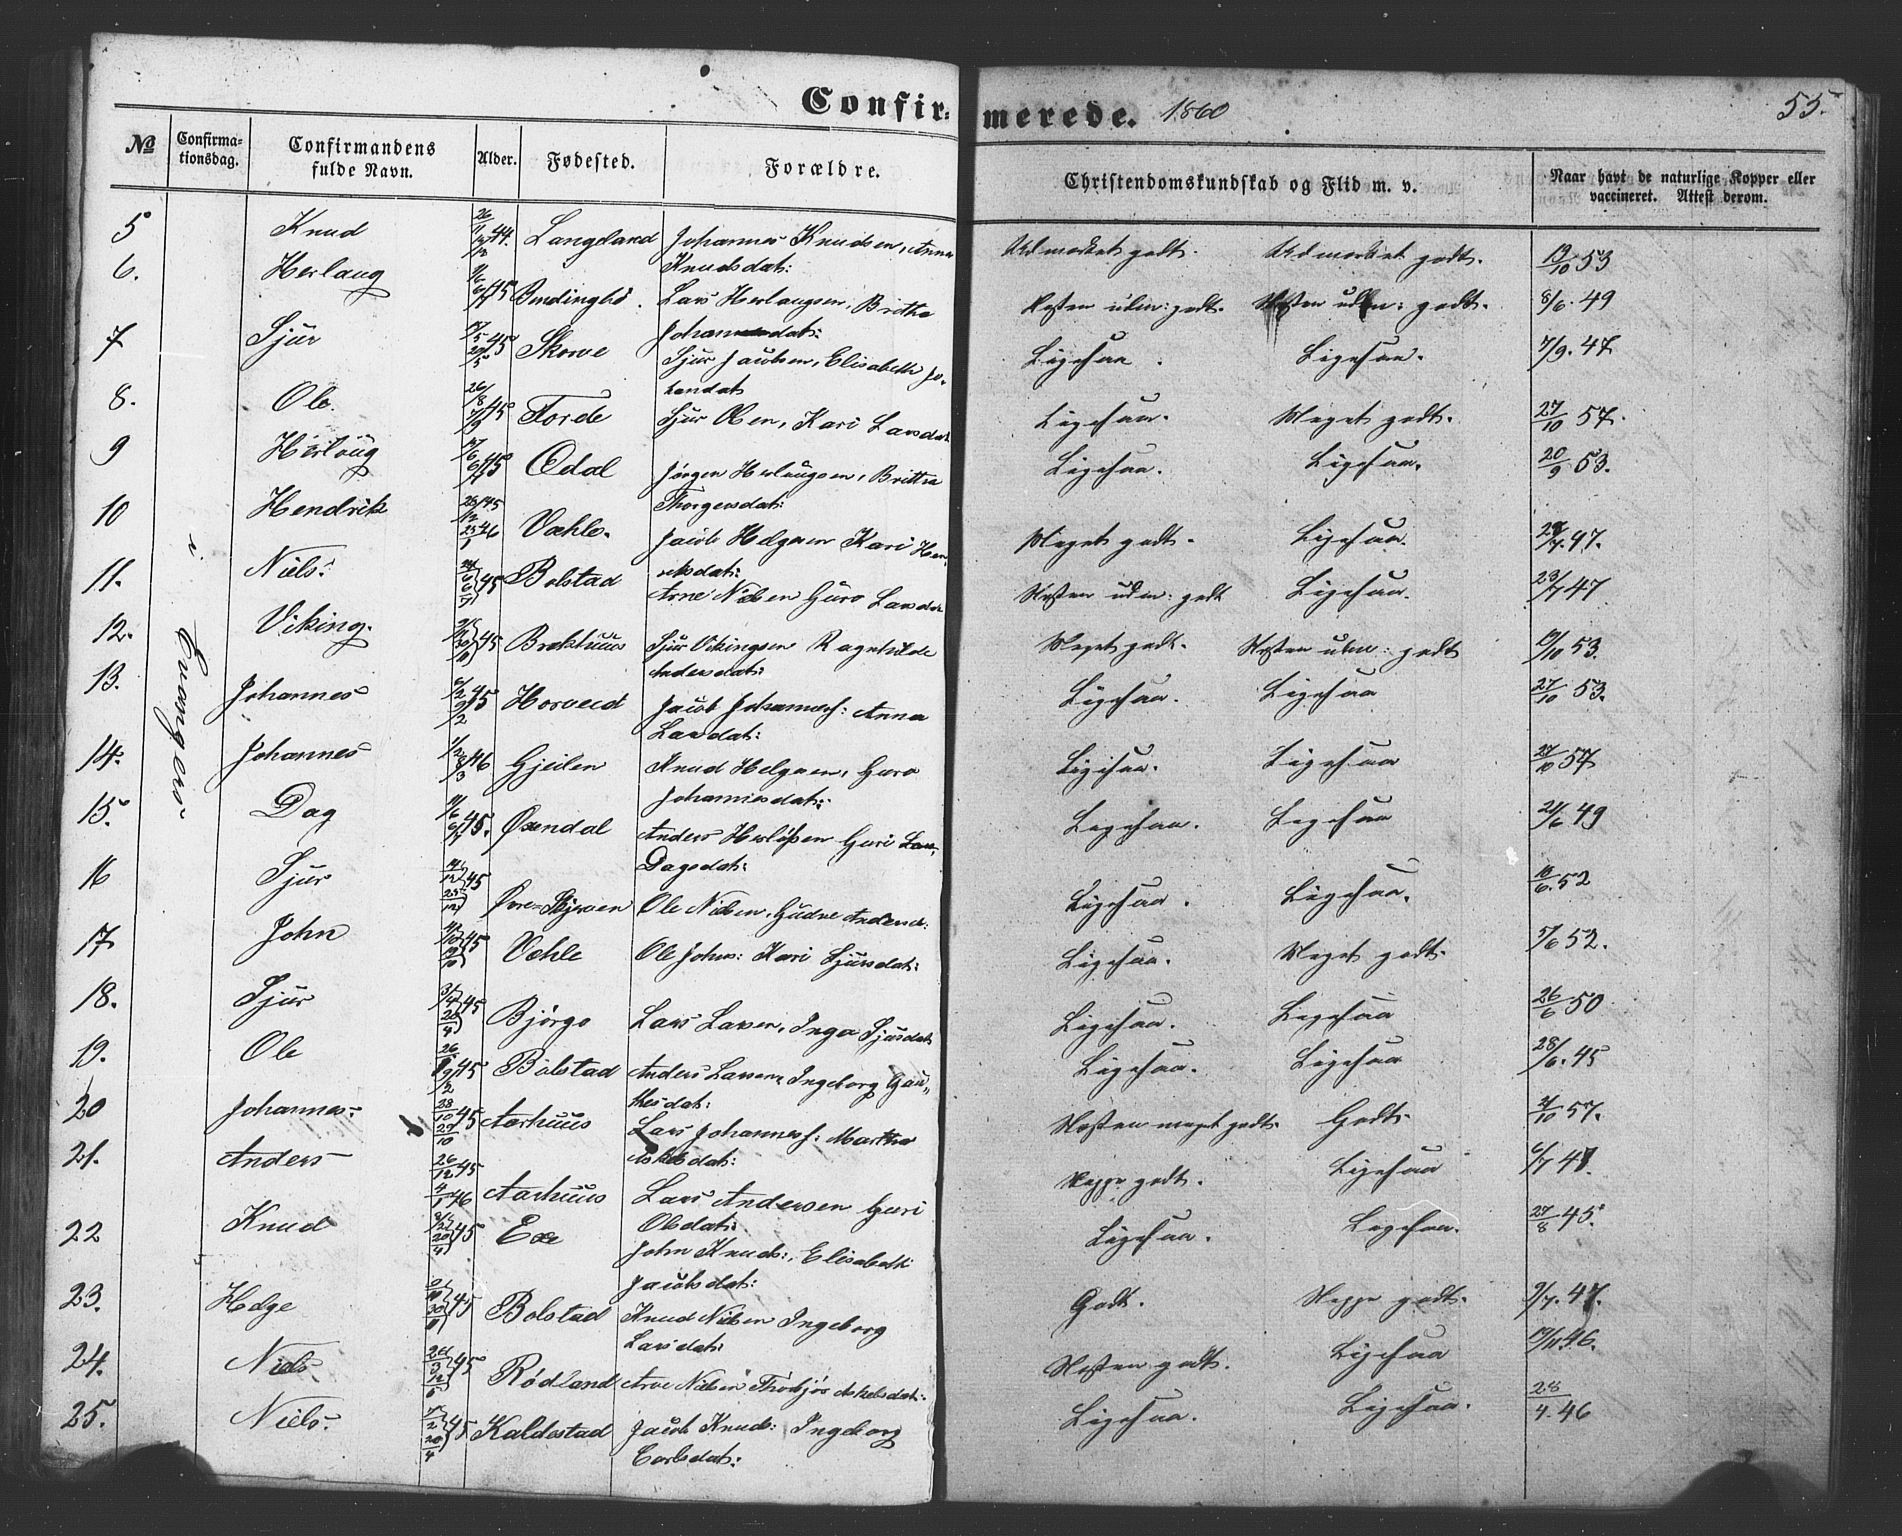 Confirmerede. 1860 55.
No Confirmationsdag. Confirmandens fulde Navn. Alder. Fødested. Forældre. Christendomskundskab og Flid m. v. Naar havt de naturlige Kopper eller vaccineret. Attest derom.
i Evanger
5 Knud 44. Langeland Johannes Knudsen, Anna Knudsdat: Udmærket godt. Udmærket godt. 19/10 53
6. Herlaug 45 Lars Herlaugsen, Britha Johannesdat: Næsten udm: godt. Næsten udm: godt. 8/6. 49
7 Sjur 45 Skorve Sjur Jacobsen, Elisabeth Johandat Ligesaa. Ligesaa. 7/9. 47
8. Ole. 26/8 45 Førde Sjur Olsen, Kari Larsdat Ligesaa. Meget godt. 27/10 57.
9 Herloug 45 Ødal Jørgen Herlaugsen, Brittha Thorgersdat: Ligesaa. Ligesaa. 20/9 53.
10 Hendrik 45 46 Væhle. Jacob Helgesen Kari Henriksdat: Meget godt. Ligesaa. 47.
11. Niels. 45 Bolstad Arne Nilsen Guro Larsda Næsten udm: godt Ligesaa. 23/7 47
12. Viking. 45 Brækhuus Sjur Vikingsen Ragnhilde Andersdat: Meget godt. Næsten udm: godt 19/10 53.
13. Johannes 45 Horveid Jacob Johannesf: Anna Larsdat: Ligesaa. Ligesaa 27/10 53.
14. Johannes 46 Gjeilen Knud Helgesen, Guro Johannesdat: Ligesaa. Ligesaa 27/10 57
15. Dag 45. Øxendal Anders Herløfsen Guri Dagsdat: Ligesaa. Ligesaa 21/6 49
16 Sjur 45 Øvre Ole Nilsen, Gudve Andersd: Ligesaa. Ligesaa. 52
17 John 45 Væhle Ole Johns: Kari Sjursdat: Ligesaa. Meget godt. 5/6 52.
18. Sjur 45 Bjørgo Lars Larsen, Inga Sjursdat Ligesaa. Ligesaa 26/6 50
19. Ole 45 Bolstad Anders Larsen, Ingeborg Gauthesdat: Ligesaa. Ligesaa 28/6. 45
20 Johannes 28/10 29/10 45 Aarhuus Lars Johannesf: Martha Askelsdat: Næsten meget godt. Godt. 57.
21. Anders 26/12 45 4/1 46 Aarhuus Lars Andersen Guri Olsdat: Neppe godt. Ligesaa 6/7 47.
22 Knud 45 Exe John Knuds:, Elisabeth Jacobsdat: Ligesaa. Ligesaa. 27/8 45.
23. Helge 45 Bolstad Knud Nilsen Ingeborg Larsdat: Godt. Neppe godt. 9/7. 47.
24. Niels 45 Rødland Arve Nilsen Thorbjør Askelsdat: Næsten godt. Ligesaa 19/11 46.
25. Niels. 45 Kaldestad Jacob Knuds: Ingeborg Carlsdat: Ligesaa. Ligesaa. 28/4. 46